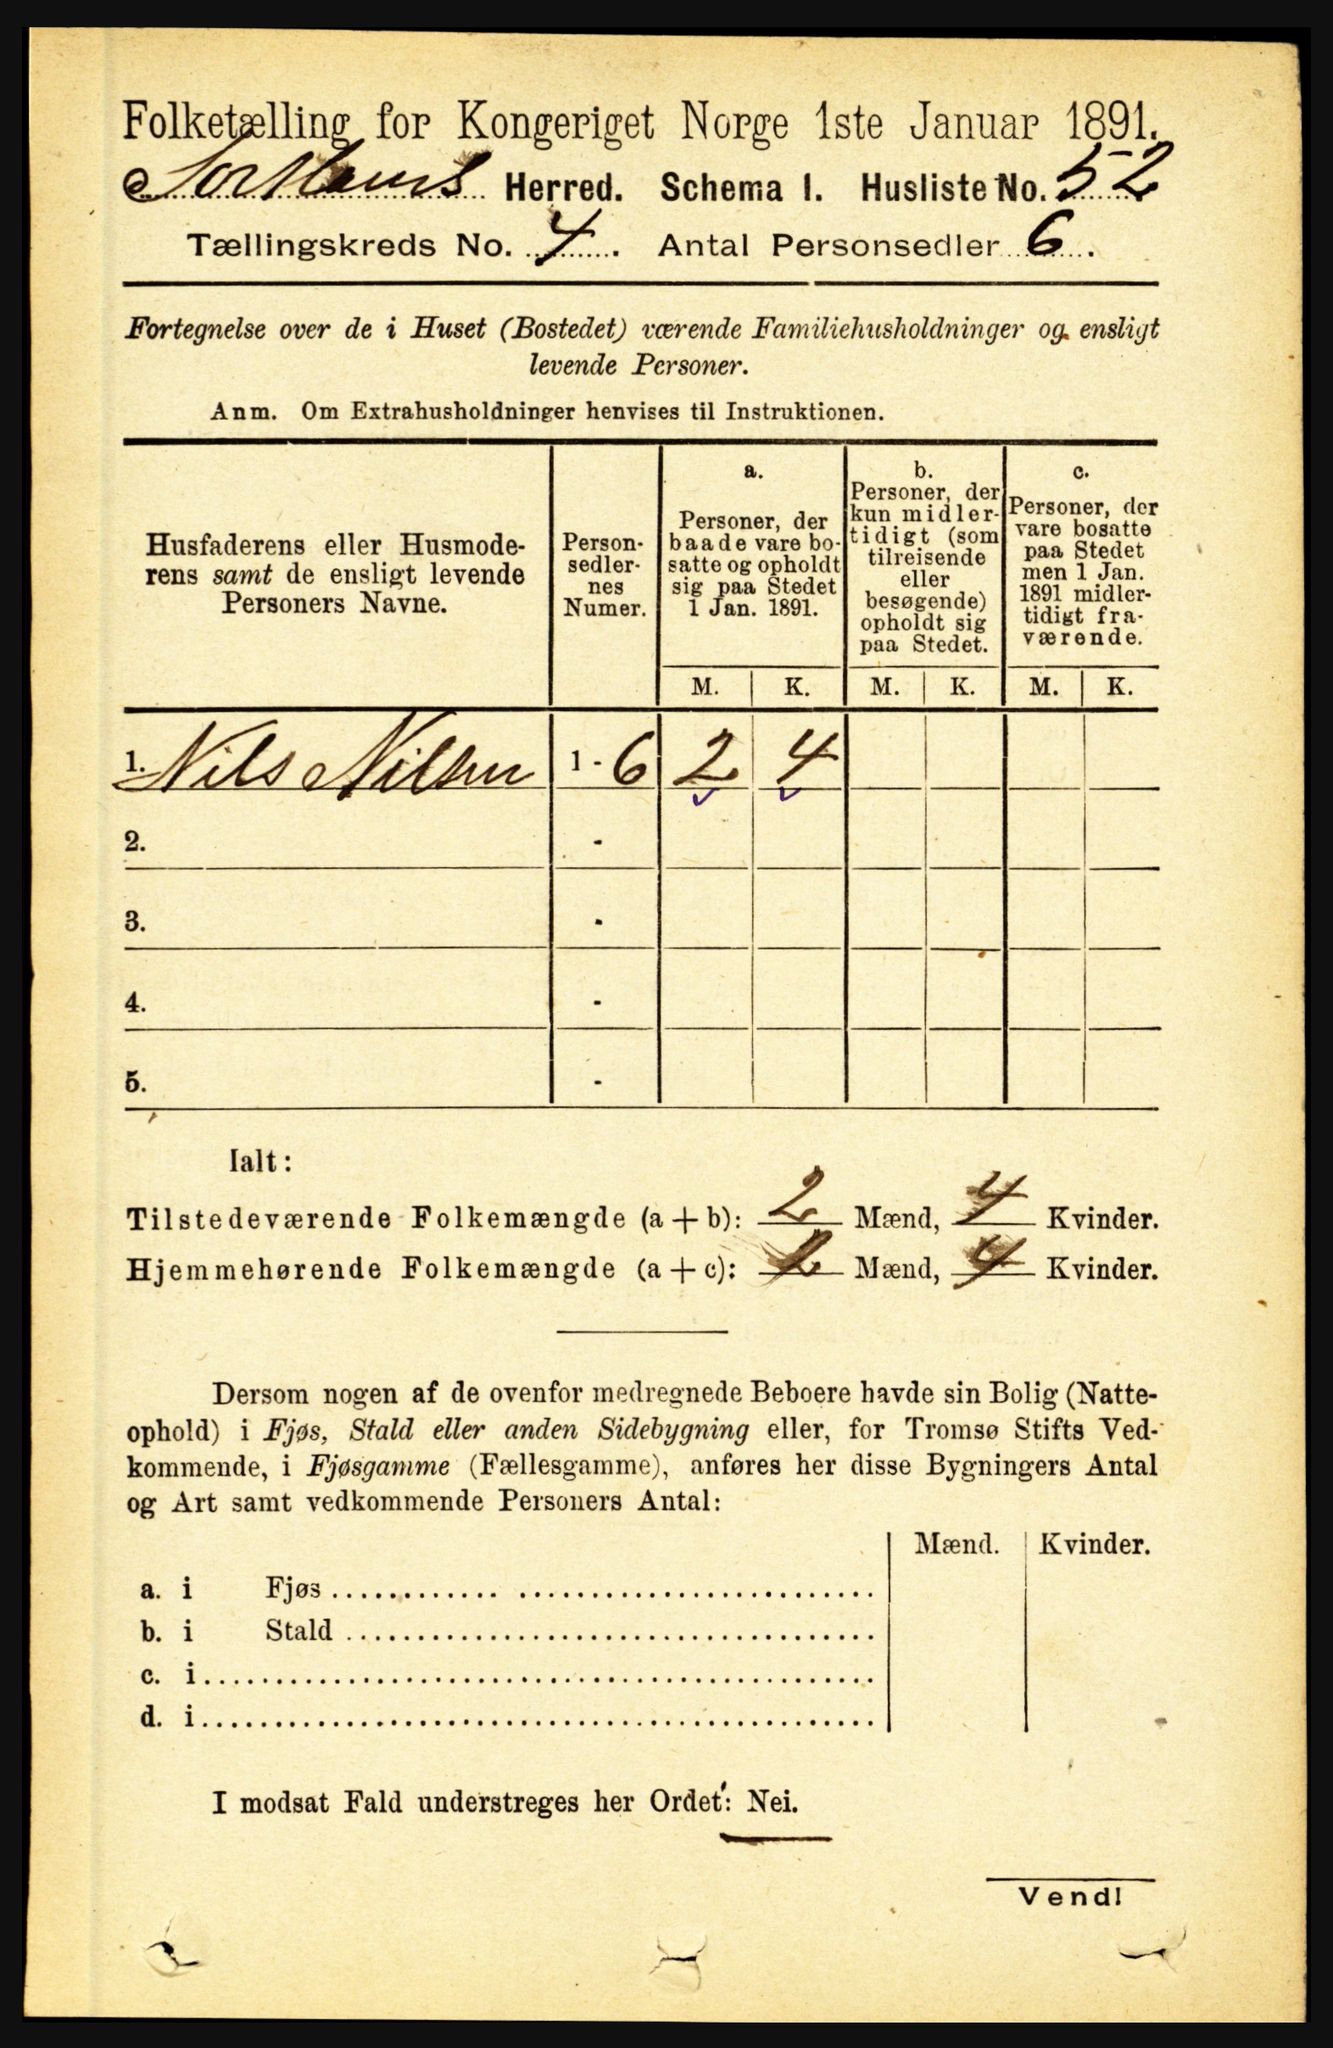 Folketælling for Kongeriget Norge 1ste Januar 1891.
Sortlands Herred. Schema 1. Husliste No. 52
Tællingskreds No. 4. Antal Personsedler 6.
Fortegnelse over de i Huset (Bostedet) værende Familiehusholdninger og ensligt
levende Personer.
Anm. Om Extrahusholdninger henvises til Instruktionen.
Husfaderens eller Husmode-
rens samt de ensligt levende
Personers Navne.
Person-
sedler-
nes
Numer.
a.
Personer, der
baade vare bo-
satte og opholdt
sig paa Stedet
1 Jan. 1891.
b.
Personer, der
kun midler-
tidigt (som
tilreisende
eller
besøgende)
opholdt sig
paa Stedet.
c.
Personer, der
vare bosatte
paa Stedet
men 1 Jan.
1891 midler-
tidigt fra-
værende.
M. K. M. K. M. K.
1. Nils Nilsen 1 - 6 2 4
2. -
3. -
4. -
5. -
Ialt:
Tilstedeværende Folkemængde (a + b): 2 Mænd, 4 Kvinder.
Hjemmehørende Folkemængde (a + c): 2 Mænd, 4 Kvinder.
Dersom nogen af de ovenfor medregnede Beboere havde sin Bolig (Natte-
ophold) i Fjøs, Stald eller anden Sidebygning eller, for Tromsø Stifts Ved-
kommende, i Fjøsgamme (Fællesgamme), anføres her disse Bygningers Antal
og Art samt vedkommende Personers Antal:
Mænd. Kvinder.
a. i Fjøs
b. i Stald
c. i
d. i
I modsat Fald understreges her Ordet: Nei.
Vend!